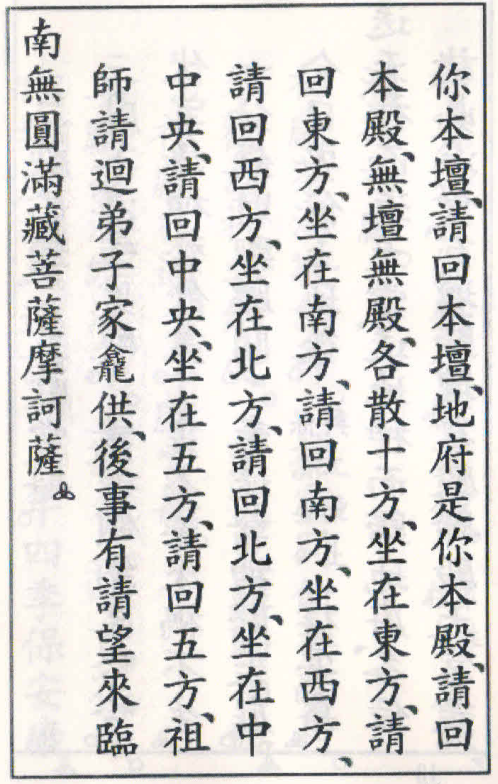 你本壇、請回本壇、地府是你本殿、請回
本殿、無壇無殿、各散十方、坐在東方、請
回東方、坐在南方、請回南方、坐在西方、
請回西方、坐在北方、請回北方、坐在中
中央、請回中央、坐在五方、請回五方、祖
師請迴弟子家龕供、後事有請望來臨
南無圓滿藏菩薩摩訶薩